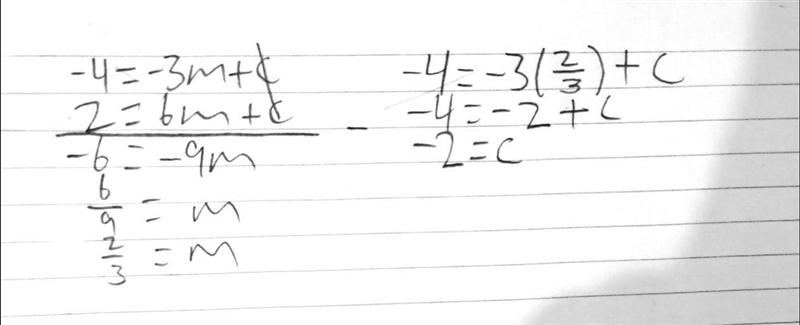 -4 = -3m + c
2 = 6m + c -
-6 = -9m
6/9 = m
2/3 = m
-4 = -3(2/3) + c
-4 = -2 + c
-2 = c